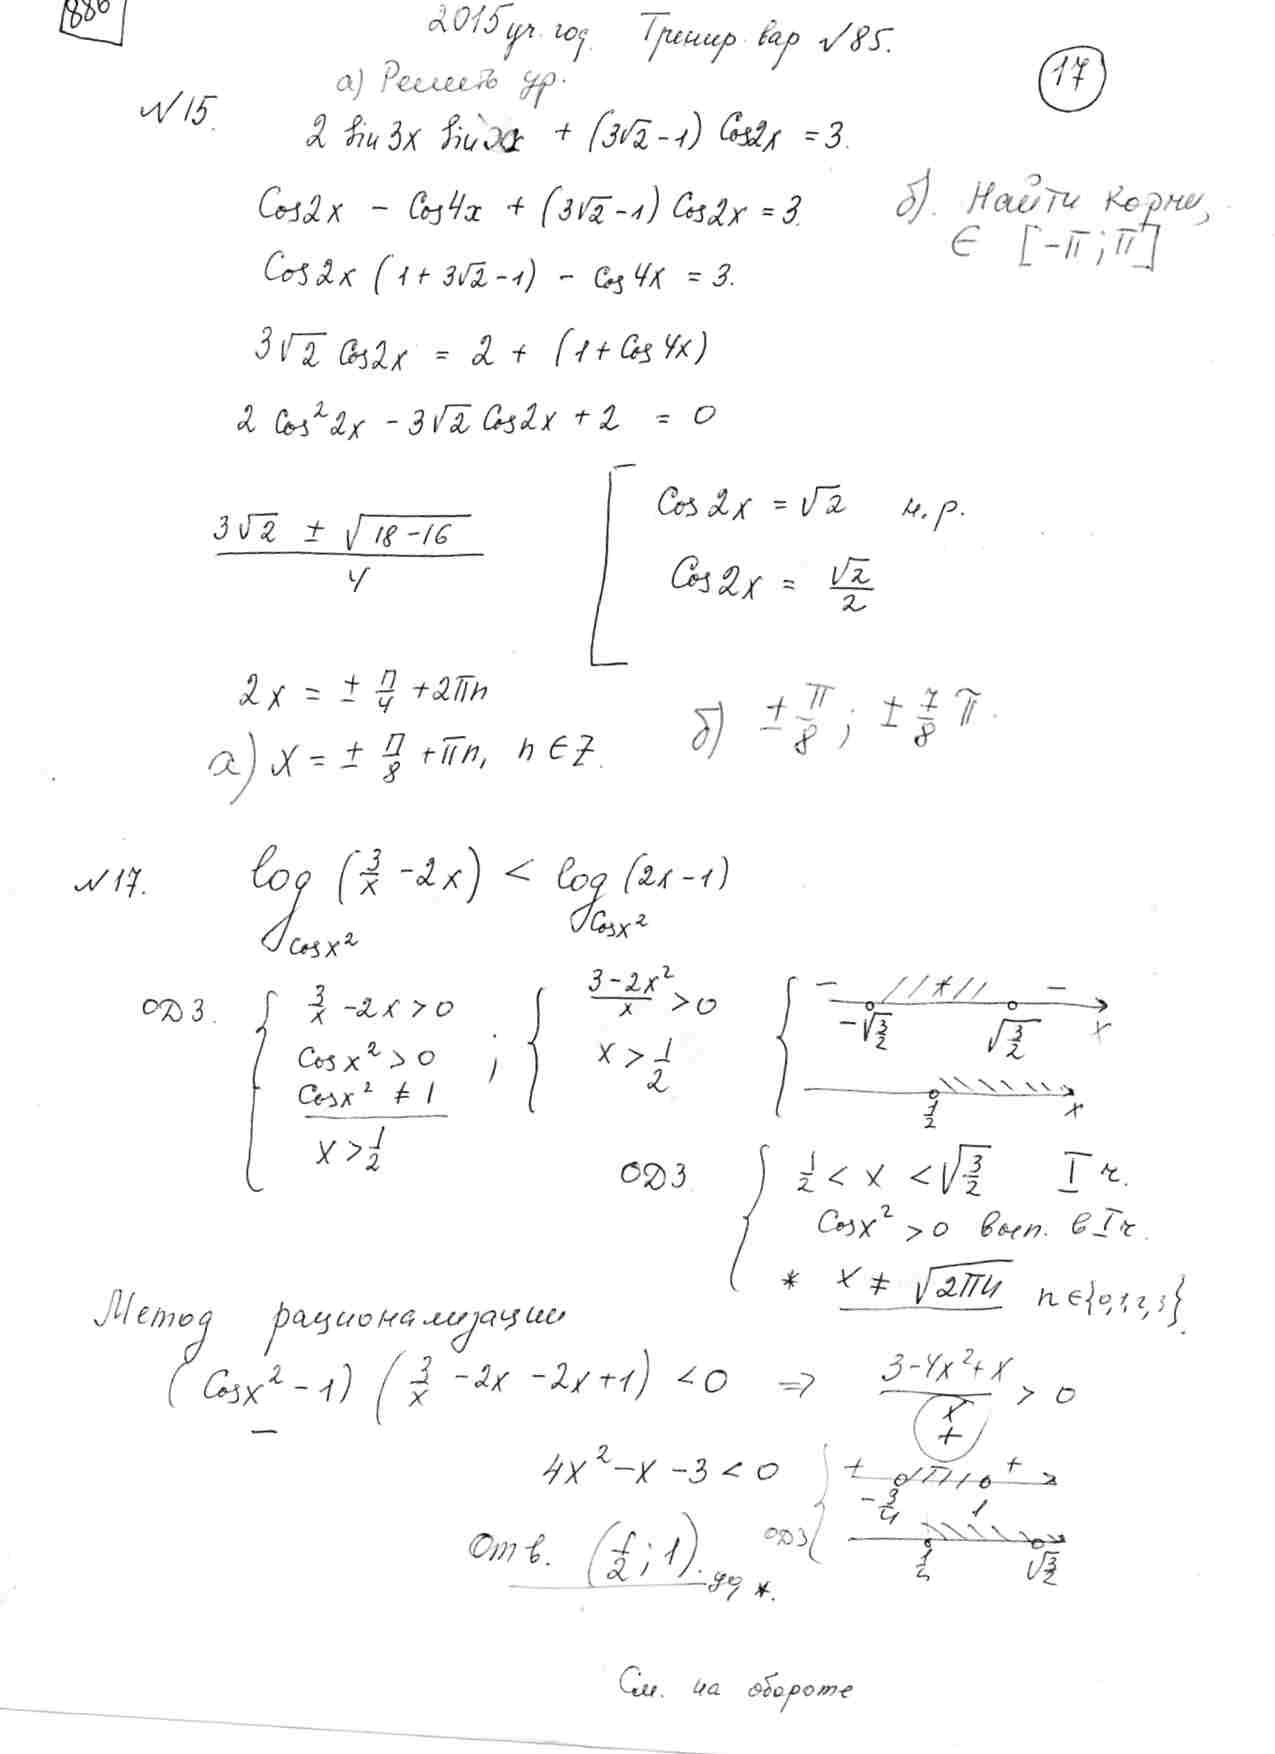 886
2015 уч. год. Тренир. вар №85.
17
а) Решить ур.
№15. 2 sin 3x sin x + (3√2 - 1) Cos2x = 3.
Cos2x - Cos4x + (3√2 - 1) Cos2x = 3.
б). Найти корни,
∈ [-π; π]
Cos2x (1 + 3√2 - 1) - Cos4x = 3.
3√2 Cos2x = 2 + (1 + Cos4x)
2 Cos²2x - 3√2 Cos2x + 2 = 0
(3√2 ± √(18-16))/4
[ Cos2x = √2 н.р.
Cos2x = √2/2
2x = ± π/4 + 2πn
а) x = ± π/8 + πn, n ∈ Z.
б) ± π/8; ± 7/8 π.
№17. log_{Cosx²} (3/x - 2x) < log_{Cosx²} (2x-1)
ОДЗ. { 3/x - 2x > 0
Cosx² > 0
Cosx² ≠ 1
x > 1/2
; { (3-2x²)/x > 0
x > 1/2
{ - + -
-√(3/2) √(3/2) x
1/2 x
ОДЗ { 1/2 < x < √(3/2) I ч.
Cosx² > 0 вып. в I ч.
* x ≠ √(2πn) n ∈ {0,1,2,3}.
Метод рационализации
(Cosx² - 1) (3/x - 2x - 2x + 1) < 0 => (3-4x²+x)/x > 0
- +
4x² - x - 3 < 0
{ + +
-3/4 1
ОДЗ 1/2 √(3/2)
Отв. (1/2; 1). *.
См. на обороте